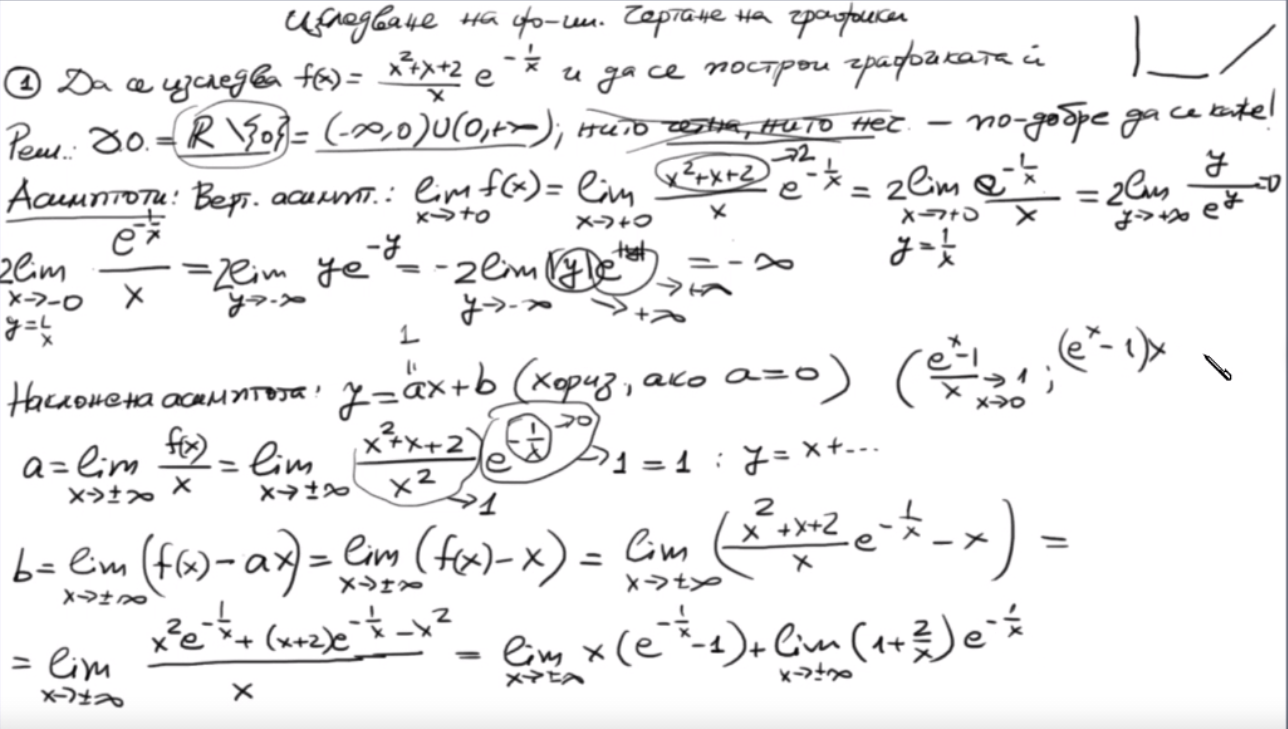 Изследване на ф-ции. Чертане на графики
① Да се изследва f(x) = \frac{x²+x+2}{x} e^{-\frac{1}{x}} и да се построи графиката ѝ
Реш.: Д.О. = ℝ \ {0} = (-∞,0)∪(0,+∞); нито четна, нито неч. – по-добре да се каже!
Асимптоти: Верт. асимпт.: \lim_{x→+0} f(x) = \lim_{x→+0} \frac{x²+x+2 →2}{x} e^{-\frac{1}{x}} = 2\lim_{x→+0} \frac{e^{-\frac{1}{x}}}{x} = 2\lim_{y→+∞} \frac{y}{e^y} = 0
y = \frac{1}{x}
2\lim_{x→-0} \frac{e^{-\frac{1}{x}}}{x} = 2\lim_{y→-∞} ye^{-y} = -2\lim_{y→-∞} |y| e^{+|y|} = -∞
→+∞ →+∞
y = \frac{1}{x}
1
Наклонена асимптота: y = ax+b (хориз, ако a=0) (\frac{e^x-1}{x} →1 x→0 ; (e^x-1)x
a = \lim_{x→±∞} \frac{f(x)}{x} = \lim_{x→±∞} \frac{x²+x+2}{x²} →1 e^{-\frac{1}{x} →0} →1 = 1 : y = x+...
b = \lim_{x→±∞} (f(x)-ax) = \lim_{x→±∞} (f(x)-x) = \lim_{x→±∞} (\frac{x²+x+2}{x} e^{-\frac{1}{x}} - x) =
= \lim_{x→±∞} \frac{x²e^{-\frac{1}{x}} + (x+2)e^{-\frac{1}{x}} - x²}{x} = \lim_{x→±∞} x(e^{-\frac{1}{x}} - 1) + \lim_{x→±∞} (1+\frac{2}{x}) e^{-\frac{1}{x}}